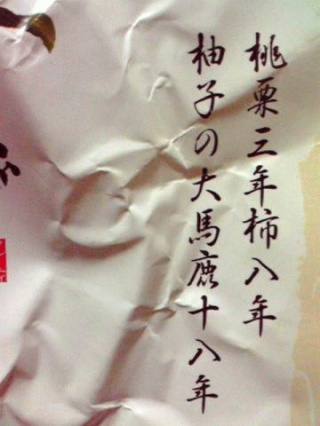 桃栗三年柿八年
柚子の大馬鹿十八年